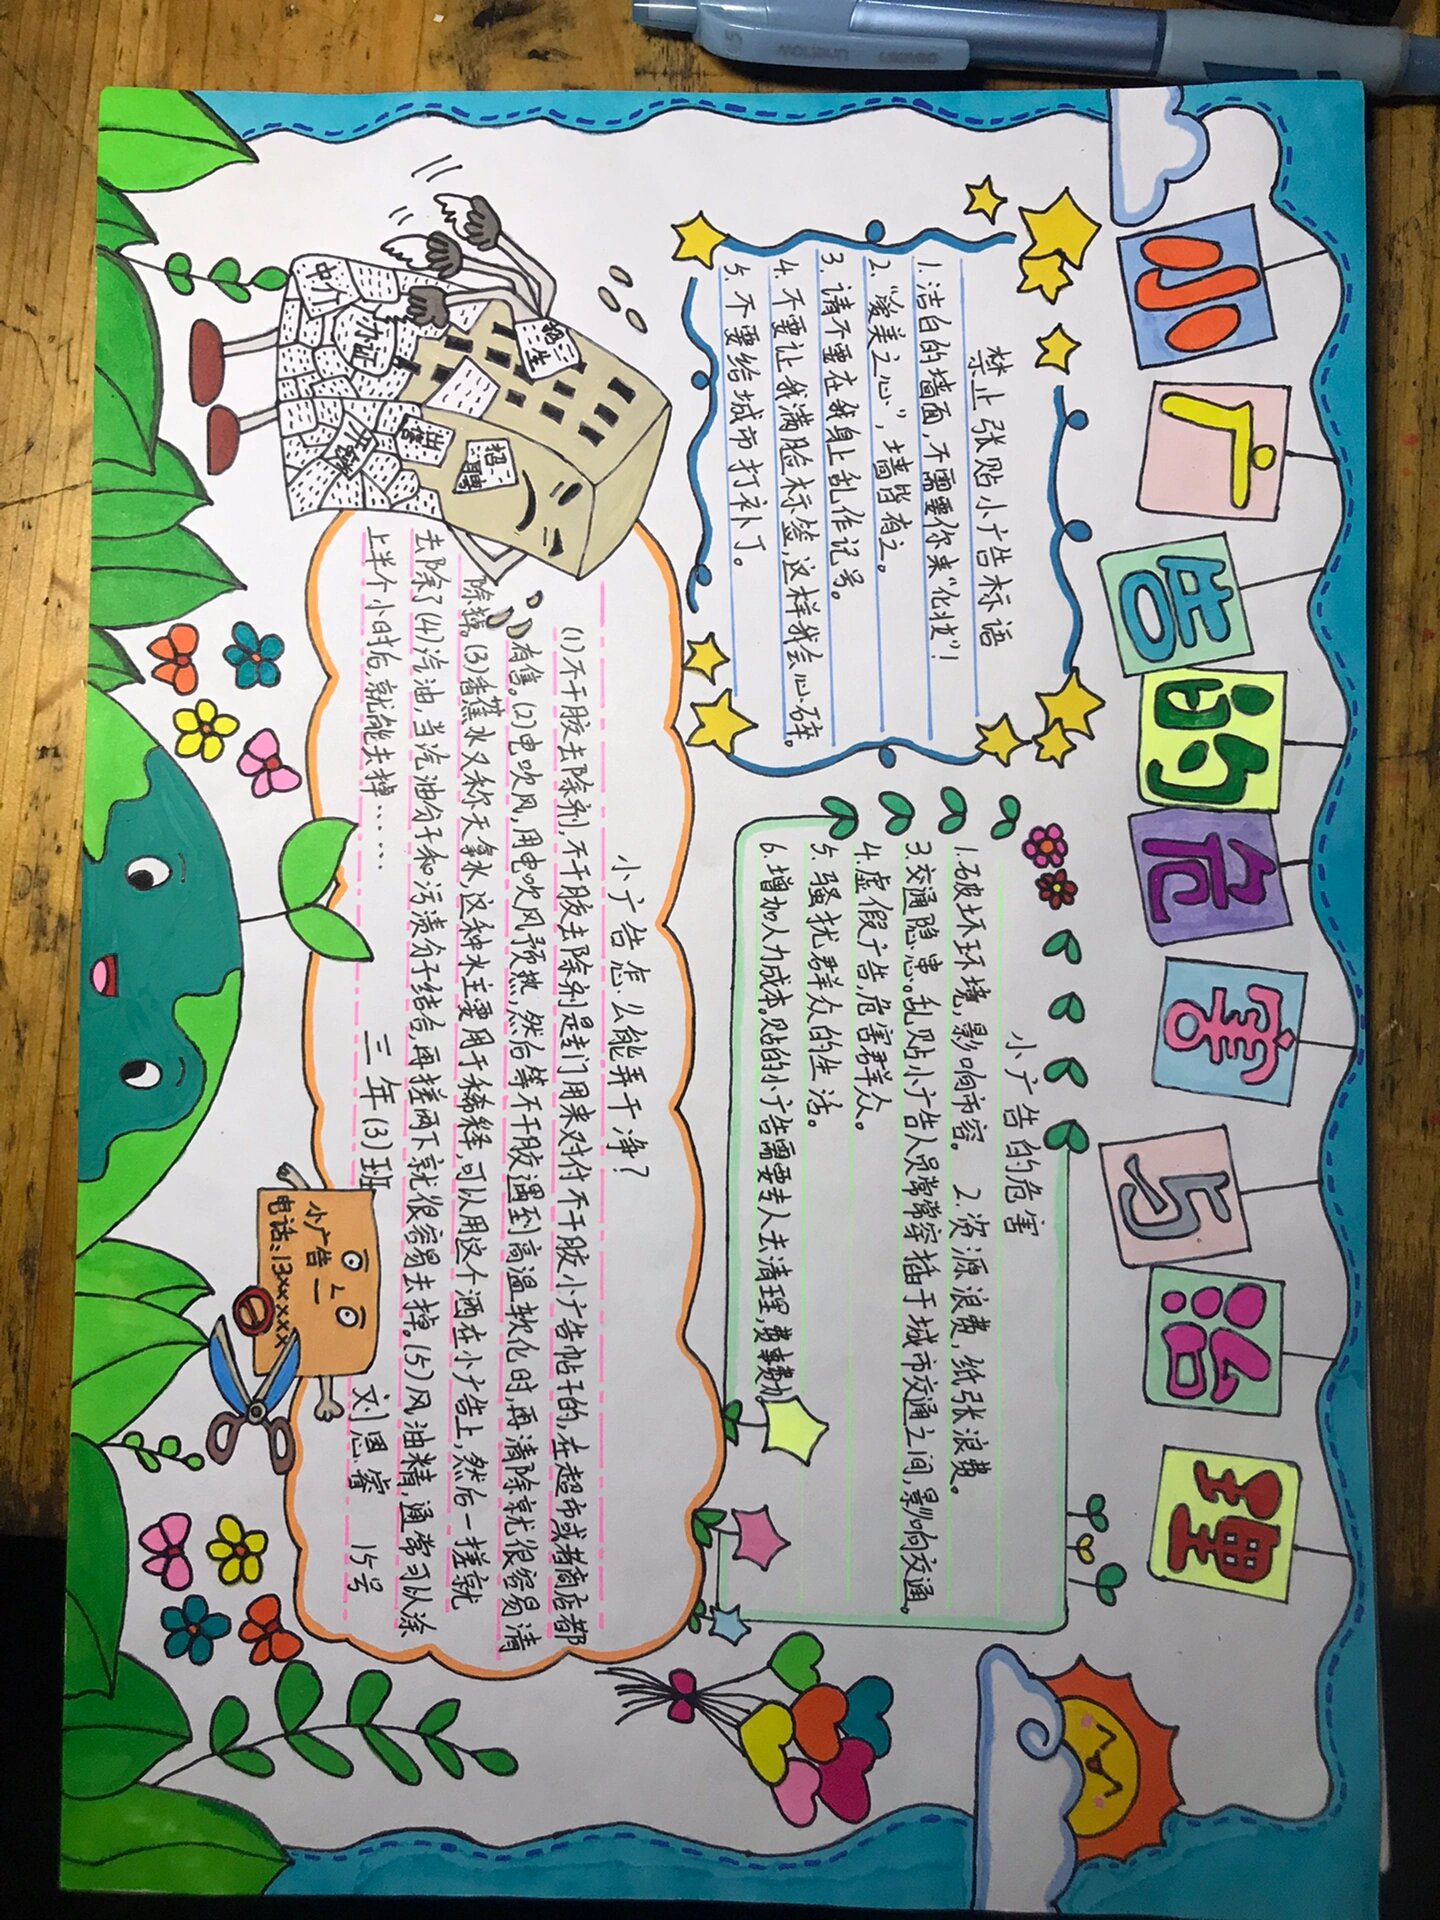 小广告的危害与治理
禁止张贴小广告标语
1.洁白的墙面,不需要你来“化妆”!
2.“爱美之心”,墙皆有之。
3.请不要在我身上乱作记号。
4.不要让我满脸标签,这样我会心碎。
5.不要给城市打补丁。
小广告的危害
1.破坏环境,影响市容。 2.资源浪费,纸张浪费。
3.交通隐患。乱贴小广告人员常常穿插于城市交通之间,影响交通。
4.虚假广告,危害群众。
5.骚扰群众的生活。
6.增加人力成本。贴的小广告需要专人去清理,费事费力。
小广告怎么能弄干净?
(1)不干胶去除剂,不干胶去除剂是专门用来对付不干胶小广告帖子的,在超市或者商店都
有售。(2)电吹风,用电吹风预热,然后等不干胶遇到高温软化时,再清除就很容易清
除掉。(3)香蕉水又称天拿水,这种水主要用于稀释,可以用这个洒在小广告上,然后一搓就
去除了(4)汽油,当汽油分子和污渍分子结合,再搓两下就很容易去掉。(5)风油精,通常可以涂
上半个小时后,就能去掉……
三年(3)班 刘思睿 15号
招生
办证
中
出售
招聘
开锁
小广告
电话:13xxxxxx